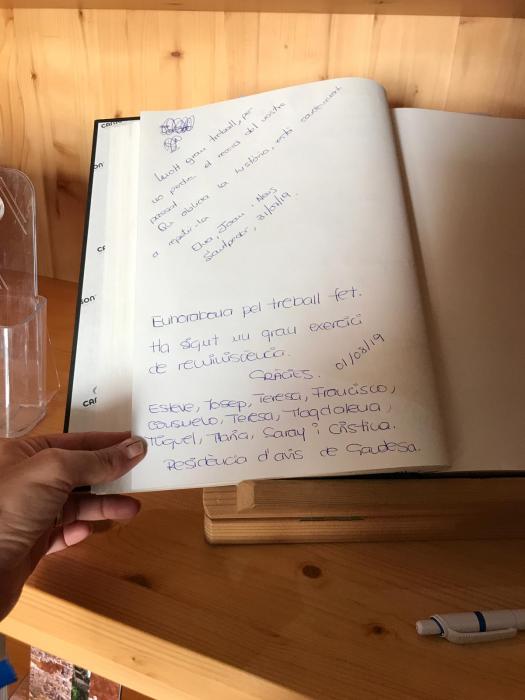 Molt gran treball, per
no perdre el record del nostre
passat.
Qui oblida la història, està condemnat
a repetir-la
Elna, Joan i Neus
Santpedor, 31/07/19.
Enhorabona pel treball fet.
Ha sigut un gran exercici
de reminiscència.
GRÀCIES. 01/08/19
Esteve, Josep, Teresa, Francisco,
Consuelo, Teresa, Magdalena,
Miquel, Maria, Saray i Cristina.
Residència d'avis de Gandesa.